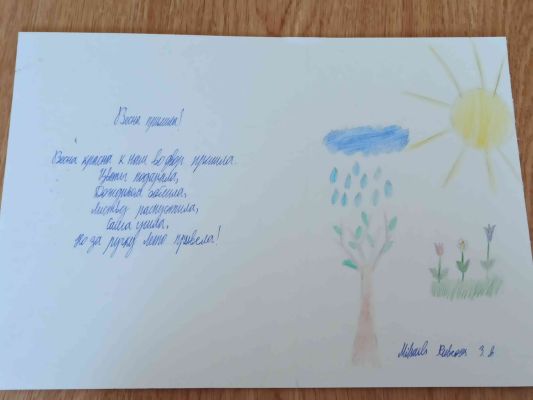 Весна пришла!
Весна красна к нам во двор пришла.
Цветы подарила,
Дождиком облила,
Листву распустила,
Сама ушла,
Но за ручку лето привела!
3. A